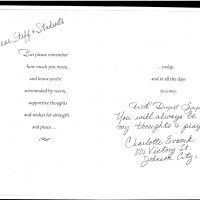 Dear Staff & Students
But please remember
how much you mean,
and know you're
surrounded by warm,
supportive thoughts
and wishes for strength
and peace…
…today,
and in all the days
to come.
With Deepest Sympa
You will always be
my thoughts & pray
Charlotte
801 Victory St.
Johnson City,